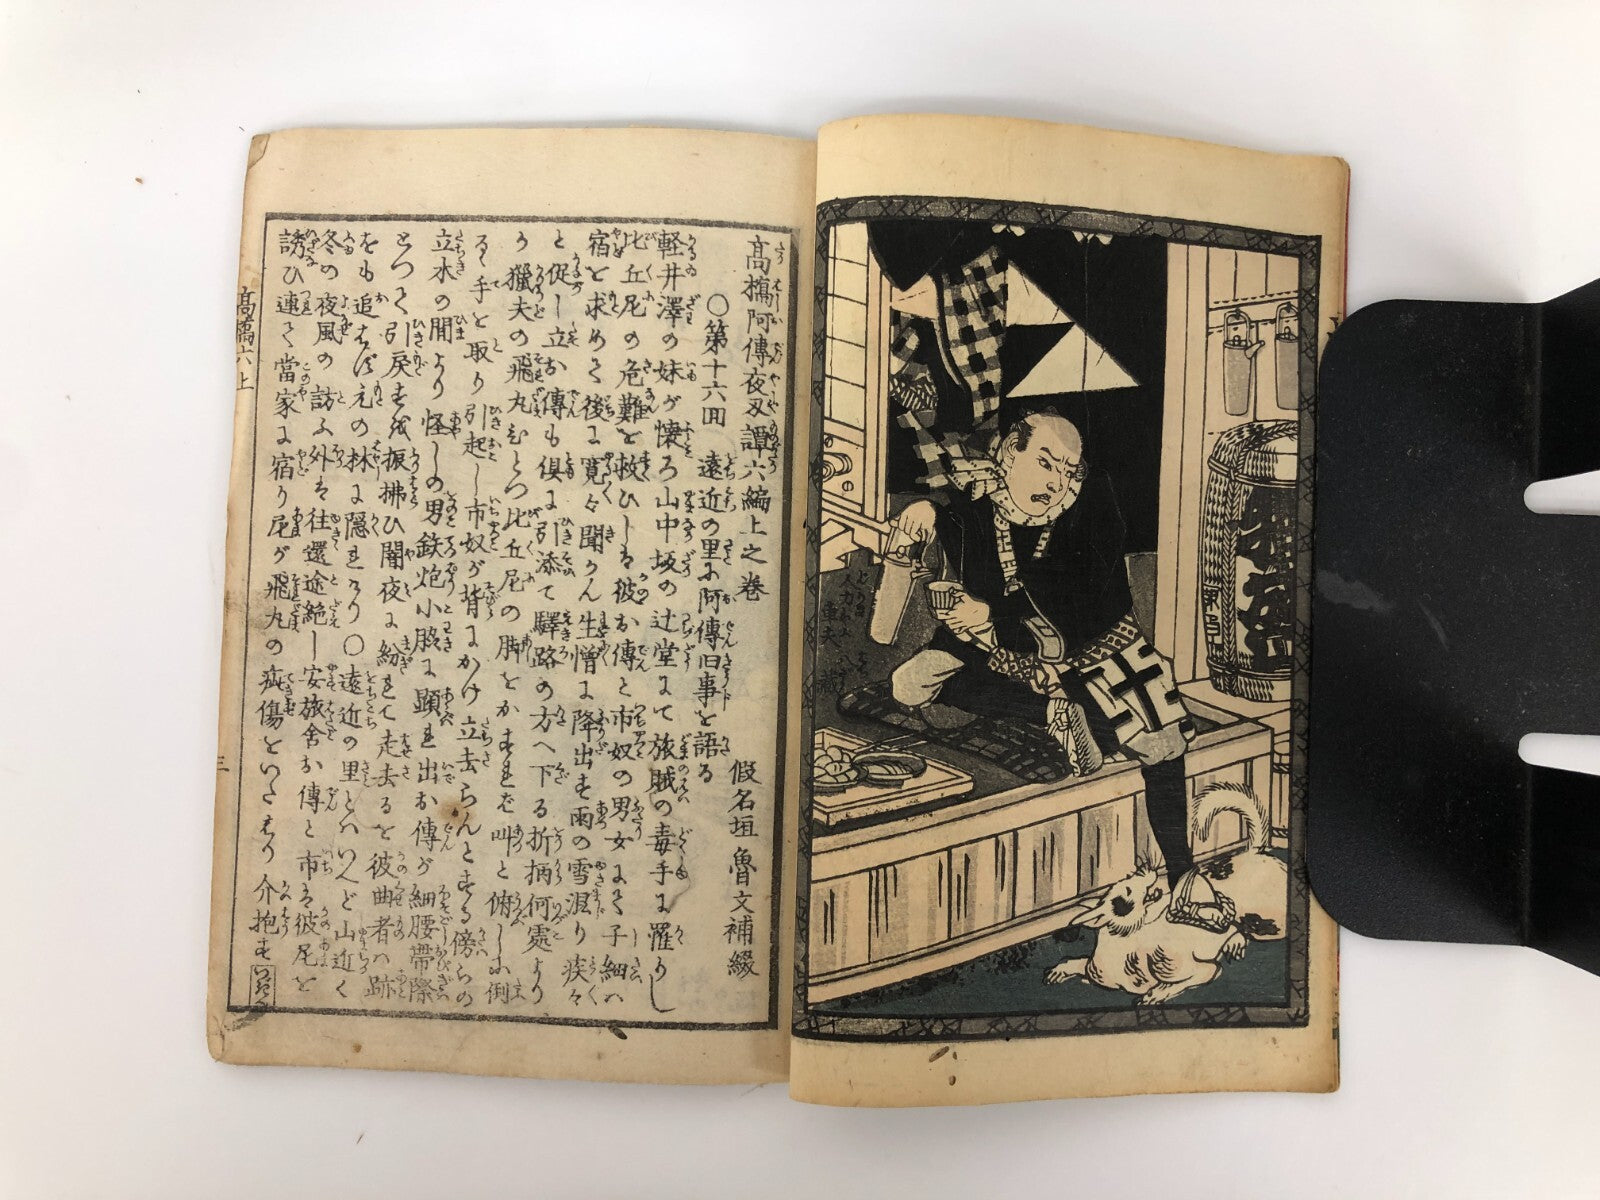 じんりき
人力
車夫
八蔵
高橋阿傳夜刄譚六編上之巻
假名垣魯文補綴
○第十六回 遠近の里に阿傳旧事を語る
軽井澤の妹が懐ろ山中坂の辻堂にて旅賊の毒手に罹りし
比丘尼の危難を救ひしは彼お傳と市奴の男女にて子細ハ
宿を求めて後に寛々聞かん生憎に降出す雨の雪混り疾々
と促し立お傳も倶に引添て驛路の方へ下る折柄何處より
か獵夫の飛丸ひとつ比丘尼の脚をかすれバ叫と俯しに倒
るゝ手を取り引起し市奴が背にかけ立去らんとする傍らの
立木の間より怪しの男鉄炮小脇に顕れ出お傳が細腰帯際
とつて引戻すを振拂ひ闇夜に紛れて走去るを彼曲者ハ跡
をも追はず元の林に隠れけり○遠近の里とハいへど山近く
冬の夜風の訪ふ外は往還途絶し安旅舎お傳と市は彼尼を
誘ひ連て當家に宿り尼が飛丸の疵傷をいたはり介抱す
高橋六上
三